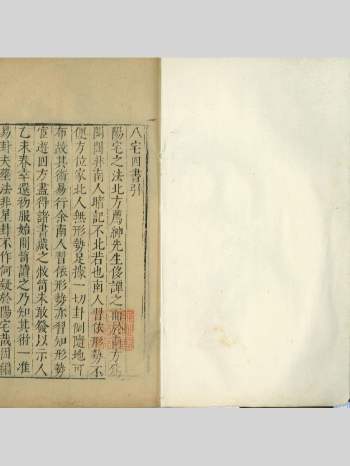 八宅四書引
陽宅之法北方薦紳先生侈譚之而於南方為
闊非南人暗記不北若也南人習依形勢不
便方位家北人無形勢足據一切卦例隨地可
布故其術易行余南人習依形勢亦習知形勢
宦遊四方盡得諸書藏之敝笥未敢發以示人
乙未春辛還初服始闢前讀之乃知其術一准
易卦夫塟法非星卦不作何疑於陽宅哉因